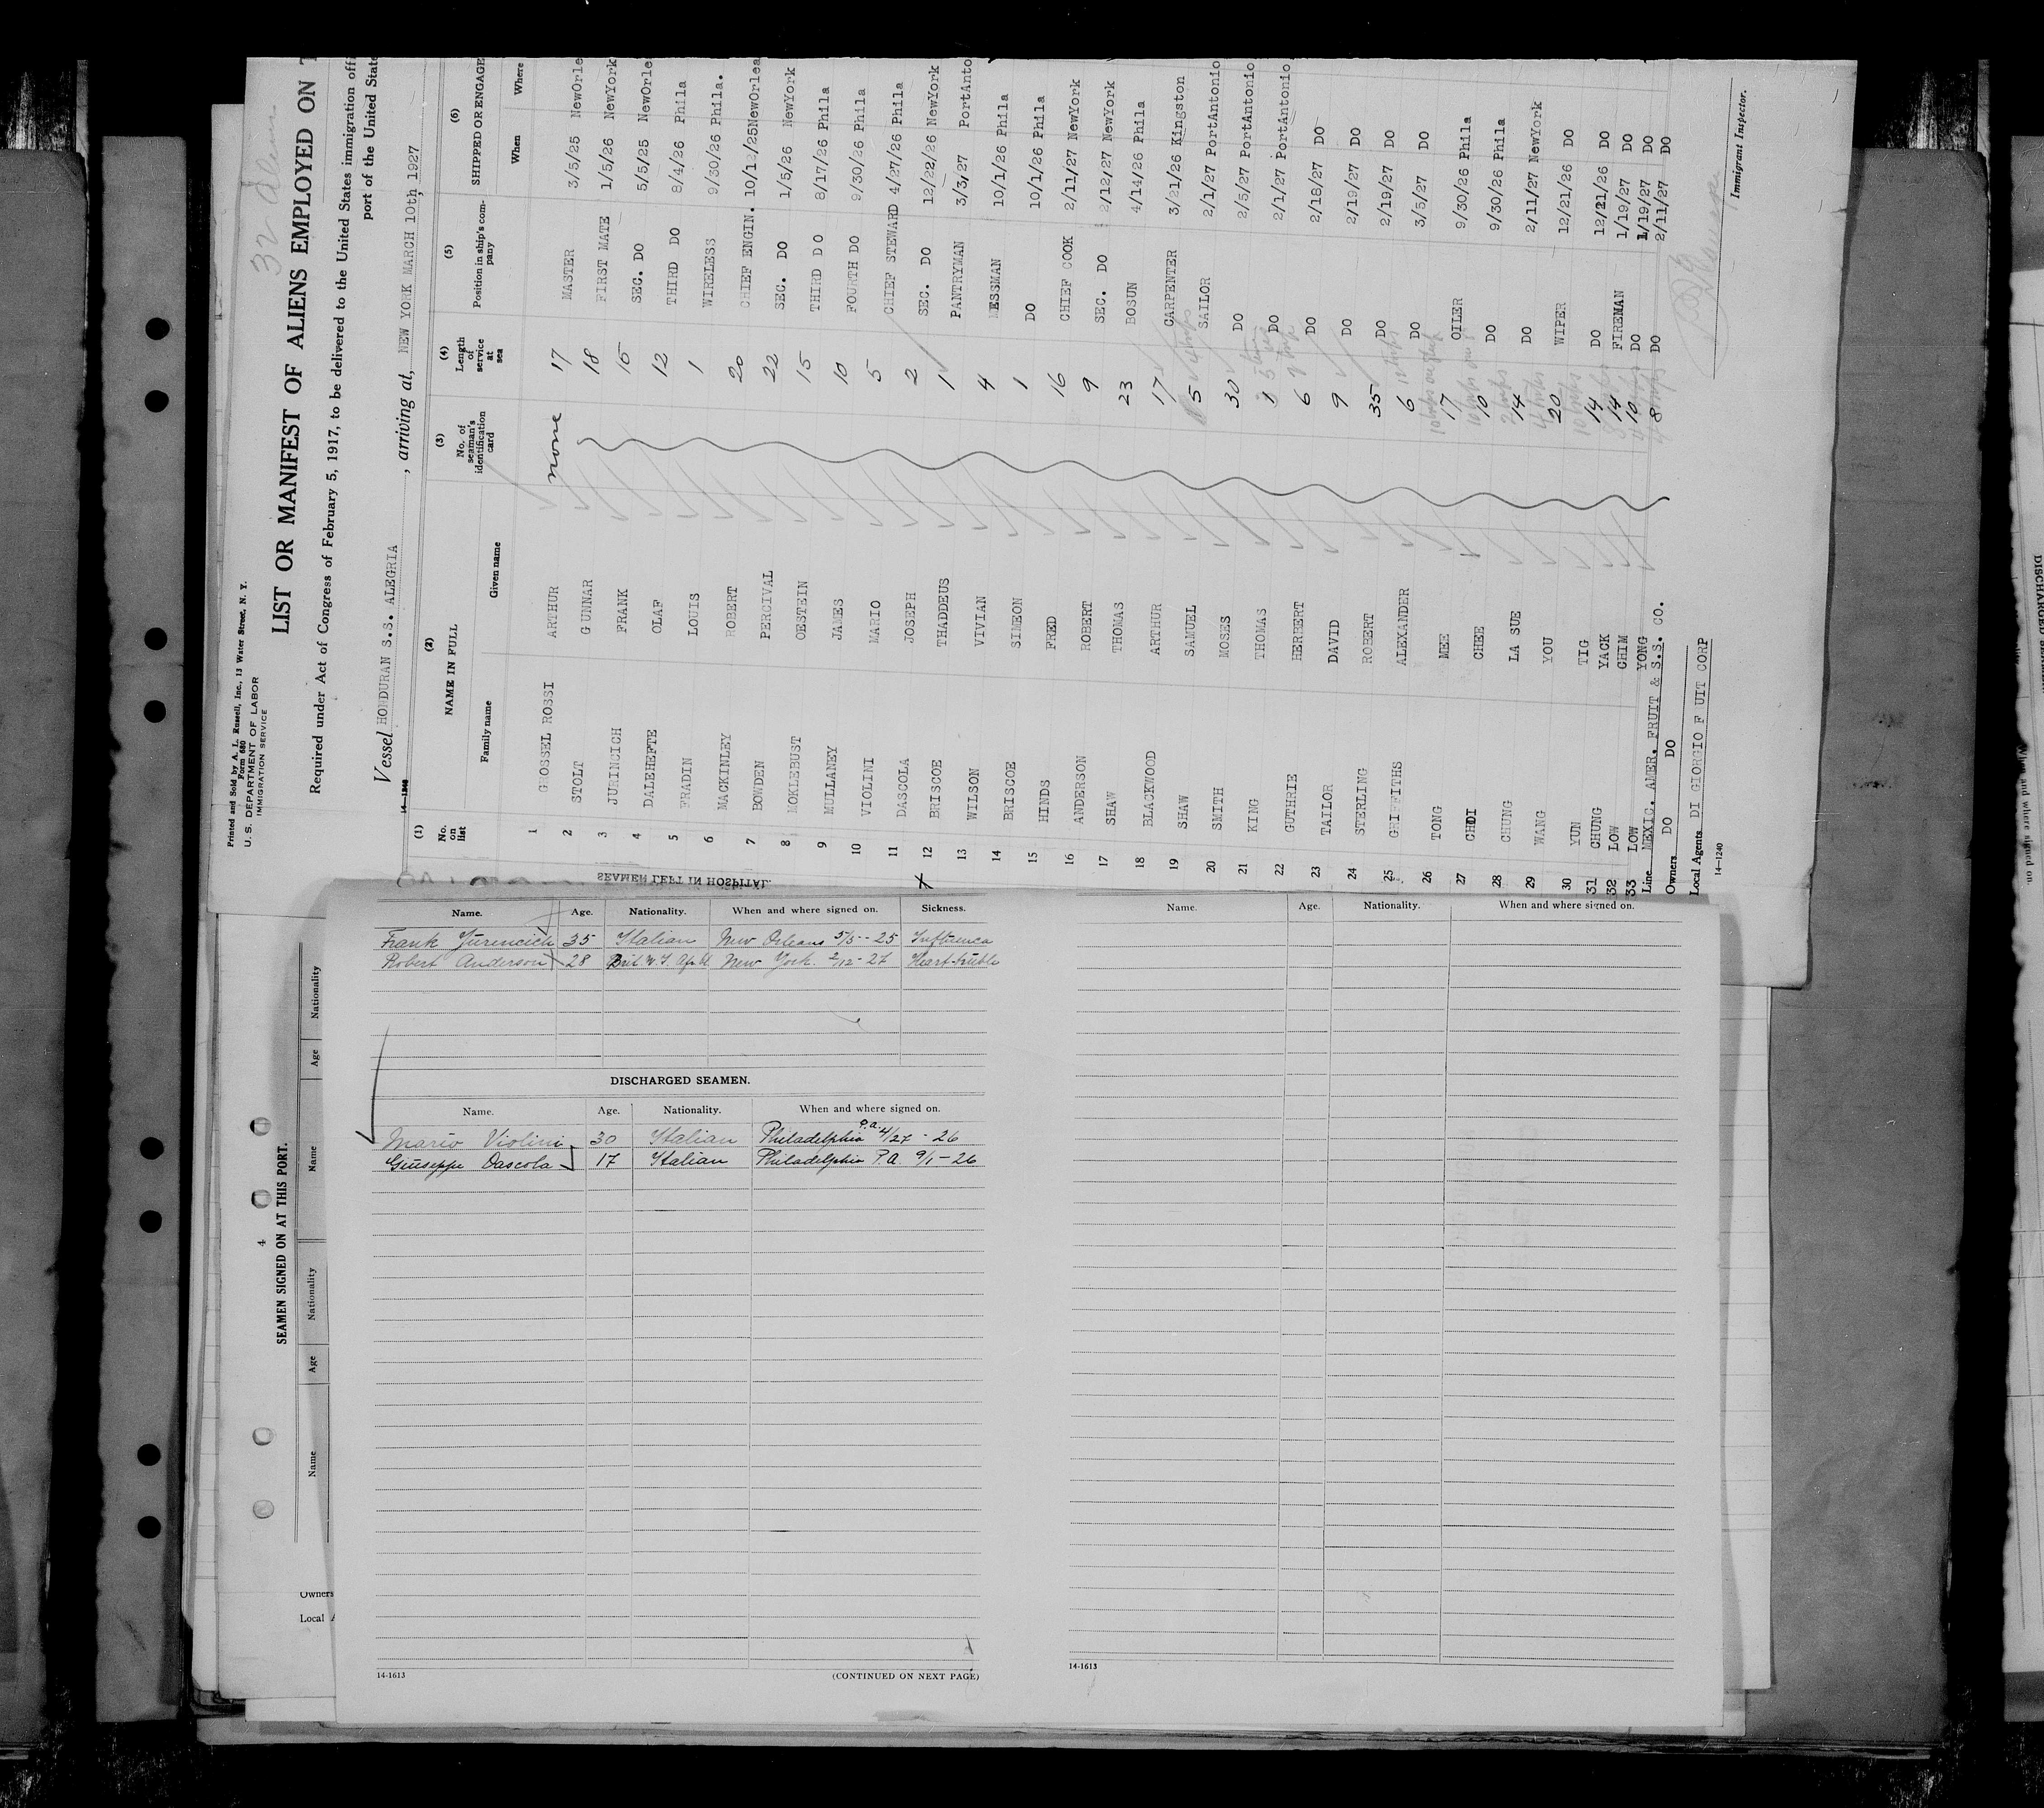 Printed and Sold by A. L. Russell, Inc., 13 Water Street, N. Y.
Form 680
U. S. DEPARTMENT OF LABOR
IMMIGRATION SERVICE
LIST OR MANIFEST OF ALIENS EMPLOYED ON
Required under Act of Congress of February 5, 1917, to be delivered to the United States immigration
port of the United State
Vessel HONDURAN S.S. ALEGRIA, arriving at, NEW YORK MARCH 10th, 1927
(1) (2) (3) (4) (5) (6)
No. on list NAME IN FULL No. of seaman's identification card Length of service at sea Position in ship's company SHIPPED OR ENGAGE
Family name Given name When Where
1 GROSSEL ROSSI ARTHUR none 17 MASTER 3/5/25 NewOrle
2 STOLT GUNNAR 18 FIRST MATE 1/5/26 NewYork
3 JURINCICH FRANK 15 SEC. DO 5/5/25 NewOrle
4 DALEHEFTE OLAF 12 THIRD DO 8/4/26 Phila
5 FRADIN LOUIS 1 WIRELESS 9/30/26 Phila.
6 MACKINLEY ROBERT 20 CHIEF ENGIN. 10/12/25 NewOrlea
7 BOWDEN PERCIVAL 22 SEC. DO 1/5/26 NewYork
8 MOKLEBUST OESTEIN 15 THIRD DO 8/17/26 Phila
9 MULLANEY JAMES 10 FOURTH DO 9/30/26 Phila
10 VIOLINI MARIO 5 CHIEF STEWARD 4/27/26 Phila
11 DASCOLA JOSEPH 2 SEC. DO 12/22/26 NewYork
12 BRISCOE THADDEUS 1 PANTRYMAN 3/3/27 PortAnto
13 WILSON VIVIAN 4 MESSMAN 10/1/26 Phila
14 BRISCOE SIMEON 1 DO 10/1/26 Phila
15 HINDS FRED 16 CHIEF COOK 2/11/27 NewYork
16 ANDERSON ROBERT 9 SEC. DO 2/12/27 NewYork
17 SHAW THOMAS 23 BOSUN 4/14/26 Phila
18 BLACKWOOD ARTHUR 17 CARPENTER 3/21/26 Kingston
19 SHAW SAMUEL 5 SAILOR 2/1/27 PortAntonio
20 SMITH MOSES 30 DO 2/5/27 PortAntonio
21 KING THOMAS 1 DO 2/1/27 PortAntonio
22 GUTHRIE HERBERT 6 DO 2/18/27 DO
23 TAILOR DAVID 9 DO 2/19/27 DO
24 STERLING ROBERT 35 DO 2/19/27 DO
25 GRIFFITHS ALEXANDER 6 DO 3/5/27 DO
26 TONG MEE 17 OILER 9/30/26 Phila
27 CHOI CHEE 10 DO 9/30/26 Phila
28 CHUNG LA SUE 14 DO 2/11/27 NewYork
29 WANG YOU 20 WIPER 12/21/26 DO
30 YUN TIG 14 DO 12/21/26 DO
31 CHUNG YACK 14 FIREMAN 1/19/27 DO
32 LOW CHIM 10 DO 1/19/27 DO
33 LOW YONG 8 DO 2/11/27 DO
Line MEXIC. AMER. FRUIT & S.S. CO.
Owners DO DO
Local Agents DI GIORGIO F UIT CORP
14—1240
Immigrant Inspector.
SEAMEN LEFT IN HOSPITAL.
Name. Age. Nationality. When and where signed on. Sickness.
Frank Jurincich 35 Italian New Orleans 5/5 - 25 Influenca
Robert Anderson 28 New York. 2/12 - 27 Heart-truble
DISCHARGED SEAMEN.
Name. Age. Nationality. When and where signed on.
Mario Violini 30 Italian Philadelphia P.a. 4/27 - 26
Giuseppe Dascola 17 Italian Philadelphia P.a. 9/1 - 26
14-1613
(CONTINUED ON NEXT PAGE)
Name. Age. Nationality. When and where signed on.
14-1613
4
SEAMEN SIGNED ON AT THIS PORT.
Name Age Nationality Name Age Nationality
Owners
Local A